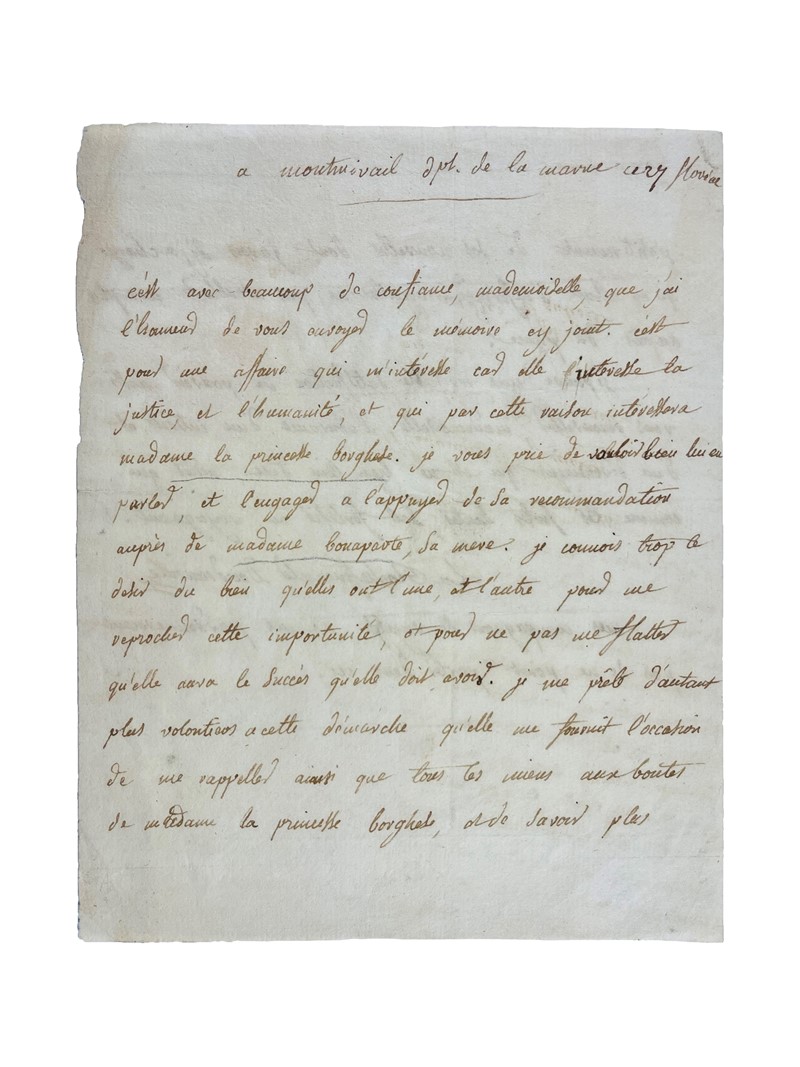 a montmirail dpt. de la marne ce 27 floréal
c'est avec beaucoup de confiance, mademoiselle, que j'ai
l'honneur de vous envoyer le mémoire cy joint. c'est
pour une affaire qui m'intéresse car elle intéresse la
justice, et l'humanité, et qui par cette raison intéressera
madame la princesse borghese. je vous prie de vouloir bien lui en
parler, et l'engager a l'appuyer de sa recommandation
auprès de madame bonaparte, sa mere. je connois trop le
desir du bien qu'elles ont l'une, et l'autre pour me
reprocher cette importunité, et pour ne pas me flatter
qu'elle aura le succés qu'elle doit avoir. je me prête d'autant
plus volontiers a cette démarche qu'elle me fournit l'occasion
de me rappeller ainsi que tous les miens aux bontés
de madame la princesse borghese, et de savoir plus